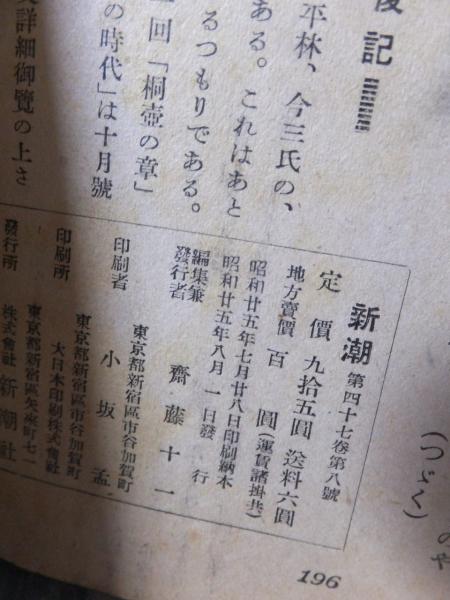 後記
平林、今三氏の、
ある。これはあと
るつもりである。
一回「桐壺の章」
の時代」は十月號
詳細御覽の上さ
新潮 第四十七卷第八號
定價 九拾五圓 送料六圓
地方賣價 百圓(運賃諸掛共)
昭和廿五年七月廿八日印刷納本
昭和廿五年八月一日發行
編集兼發行者 齋藤十一
東京都新宿區市谷加賀町
印刷者 小坂孟
東京都新宿區市谷加賀町
印刷所 大日本印刷株式會社
東京都新宿區矢來町七一
發行所 株式會社 新潮社
(つゞく)
のや
196